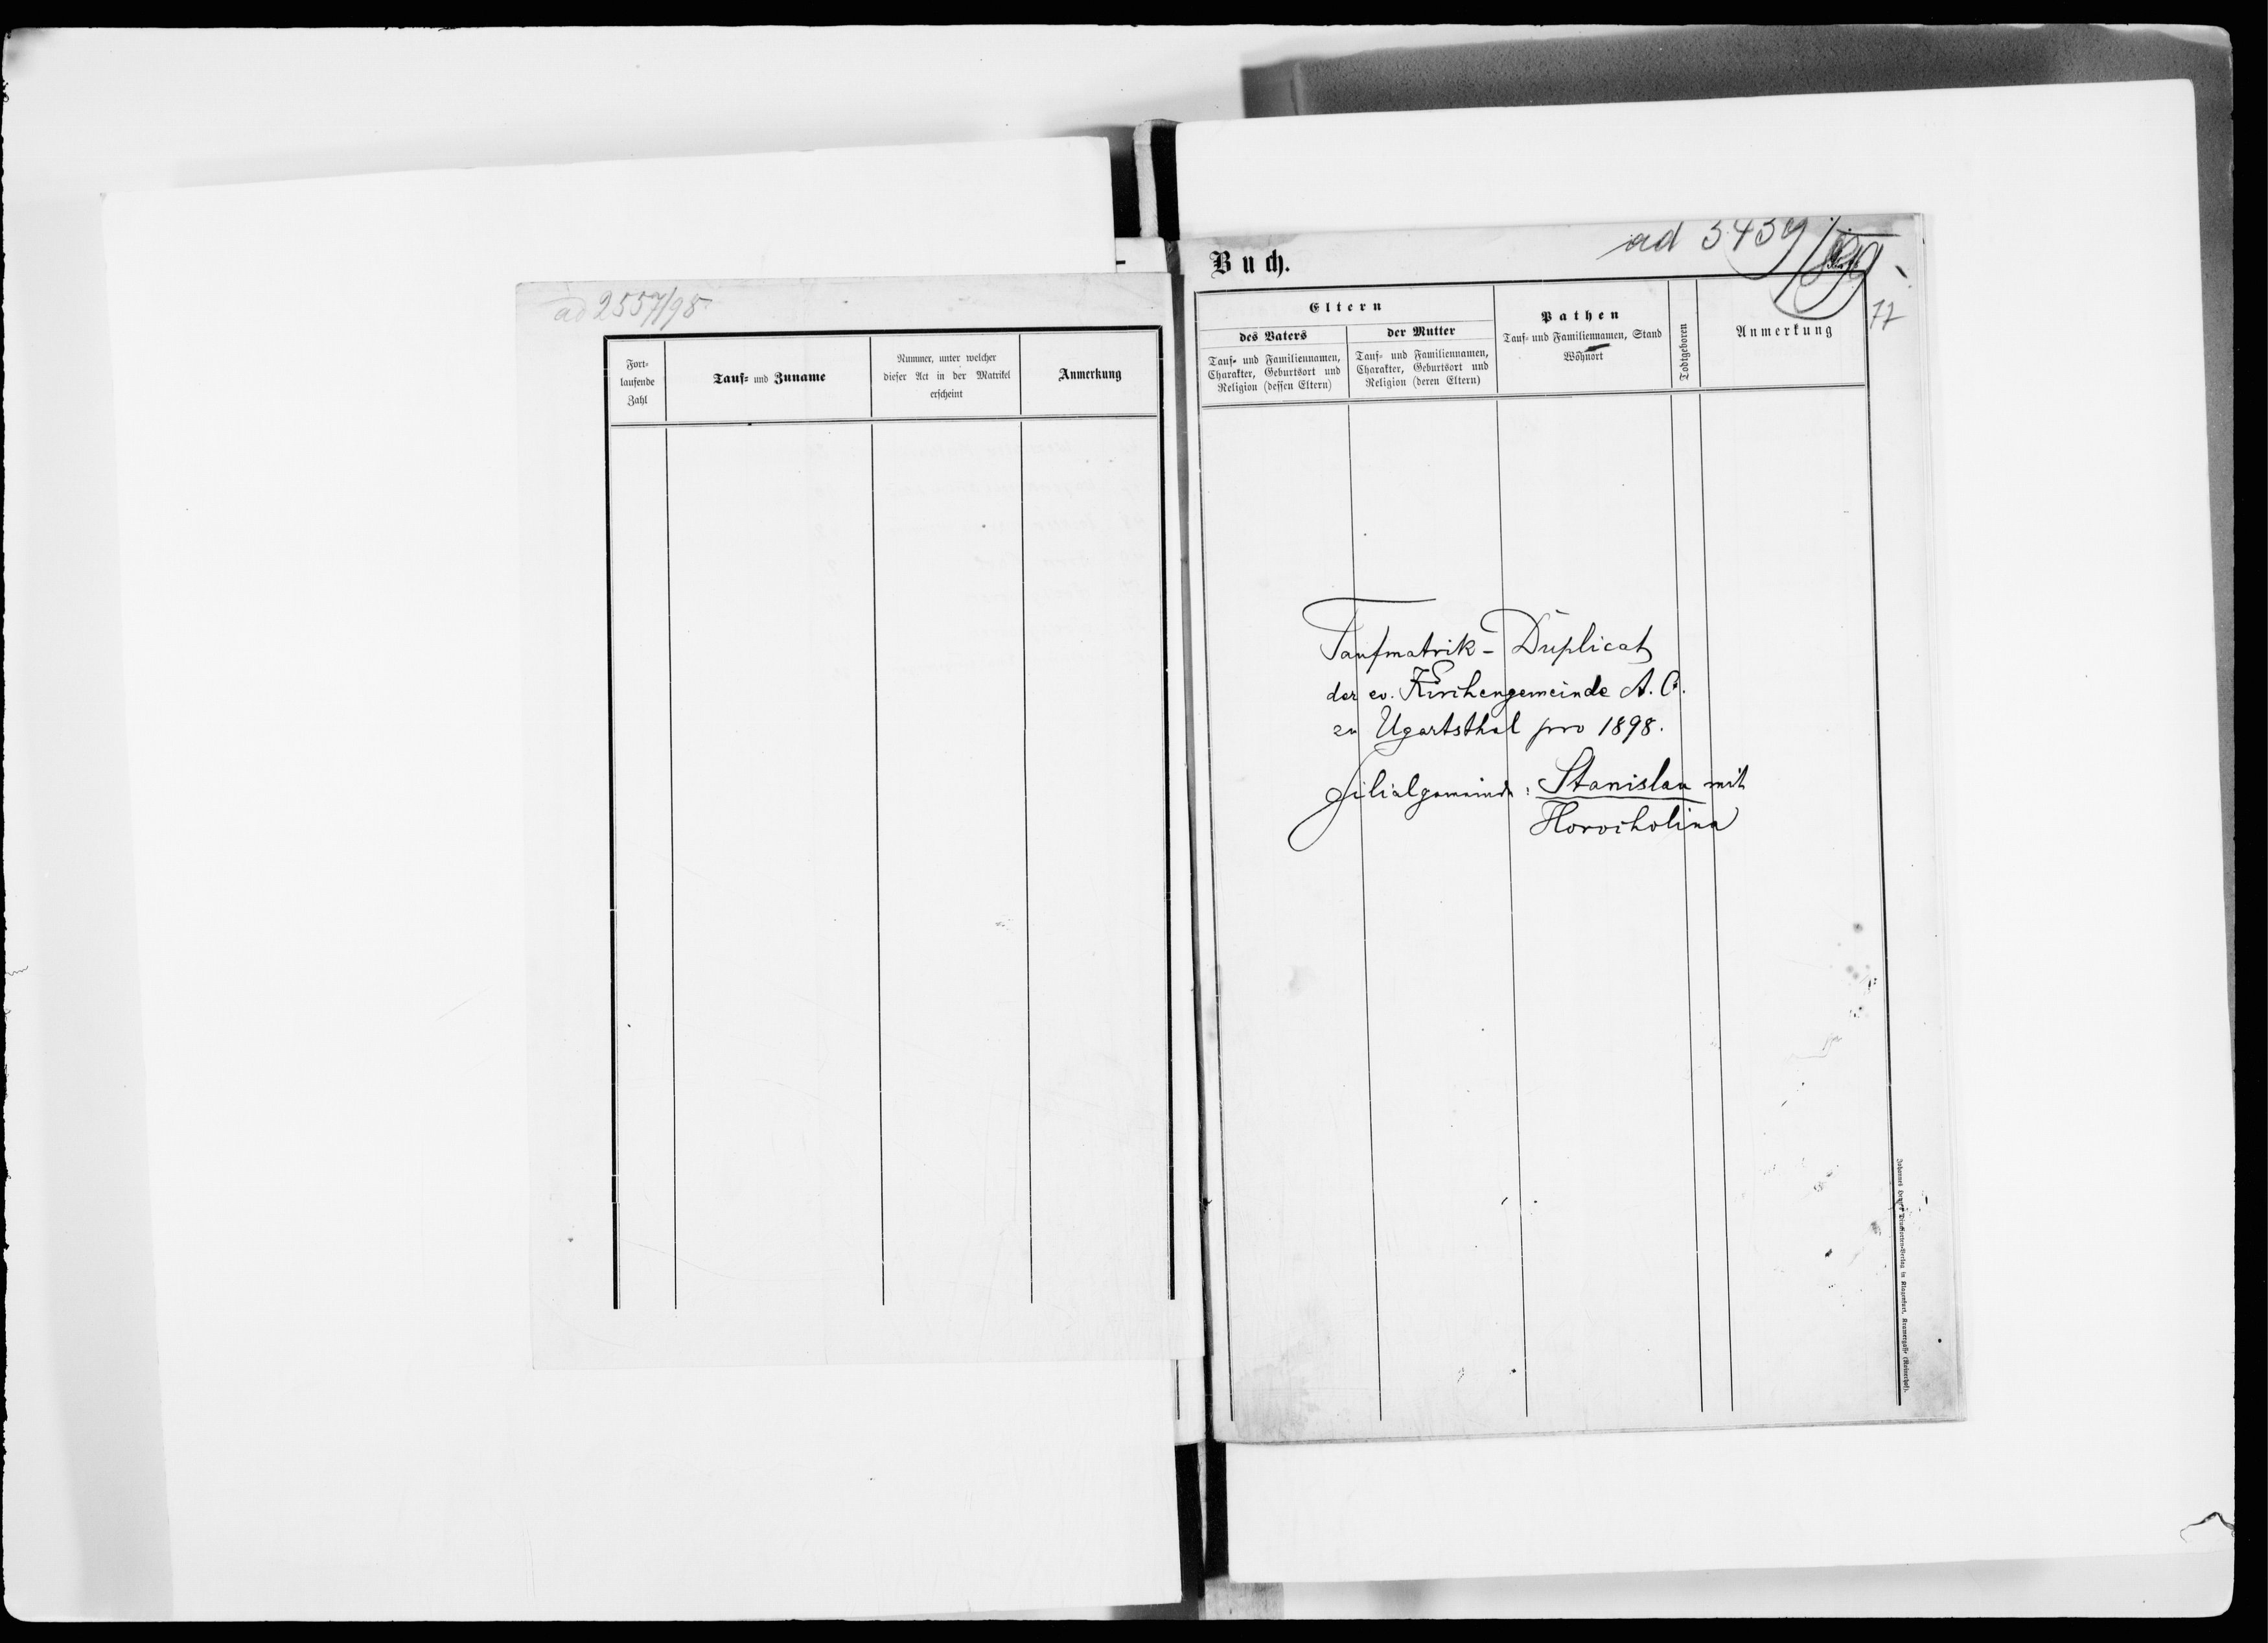 ad 2557/98
Fort-
laufende
Zahl
Tauf- und Zuname
Nummer, unter welcher
dieser Act in der Matrikel
erscheint
Anmerkung
Buch.
ad 3439/99
77
Eltern
des Vaters
Tauf- und Familiennamen,
Charakter, Geburtsort und
Religion (dessen Eltern)
der Mutter
Tauf- und Familiennamen,
Charakter, Geburtsort und
Religion (deren Eltern)
Pathen
Tauf- und Familiennamen, Stand
Wohnort
Todtgeboren
Anmerkung
Taufmatrik-Duplicat
der ev. Kirchengemeinde A. C.
zu Ugartsthal pro 1898.
Filialgemeinde: Stanislau mit
Horocholina
Verlag in Klagenfurt,